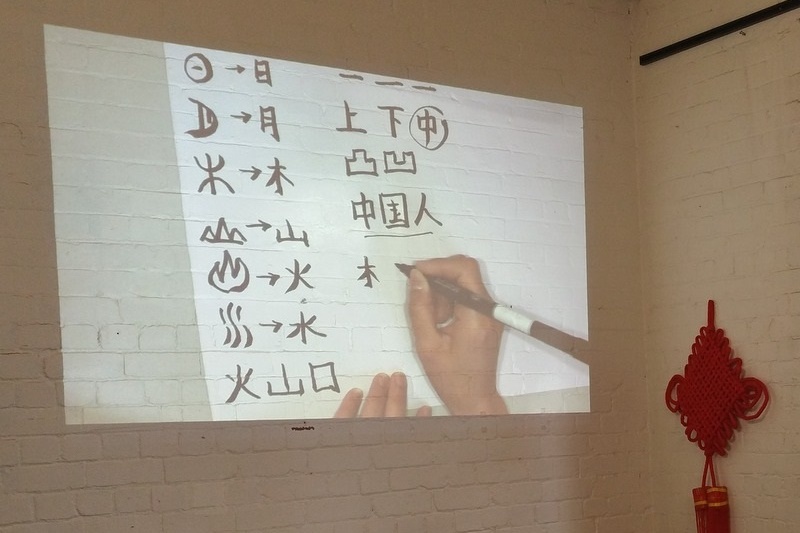 →日
→月
→木
→山
→火
→水
火山口
上下中
凸凹
中国人
木